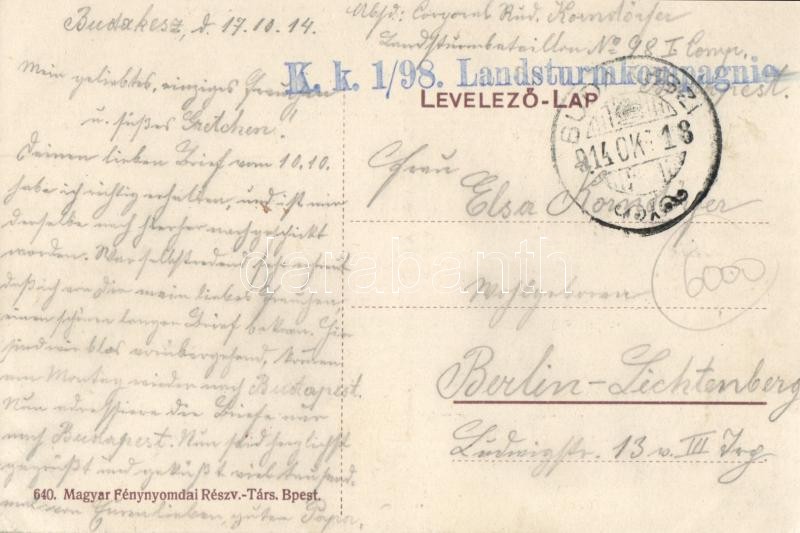 Budakesz, d. 17.10.14.
Mein geliebtes, einziges Frauchen
u. süßes Gretchen!
Deinen lieben Brief vom 10.10.
habe ich richtig erhalten, und ist mir
derselbe nach hierher nachgeschickt
worden. War selbstredend sehr erfreut
daß ich von Dir mein liebes Frauchen
einen schönen langen Brief bekam. Hier
sind wir blos vorübergehend, kommen
am Montag wieder nach Budapest.
Nun adressiere die Briefe nur
nach Budapest. Nun seid herzlichst
gegrüßt und geküßt viel tausend-
mal von Eurem lieben, guten Papa.
640. Magyar Fénynyomdai Részv.-Társ. Bpest.
Absd: Corporal Rud. Korndörfer
Landsturmbataillon No 98 I Comp.
Budapest.
K. k. 1/98. Landsturmkompagnie
LEVELEZŐ-LAP
914 OKT 18
Frau
Elsa Korndörfer
Wohlgeboren
6000
Berlin-Lichtenberg
Ludwigstr. 13 v. III Trg
darabanth